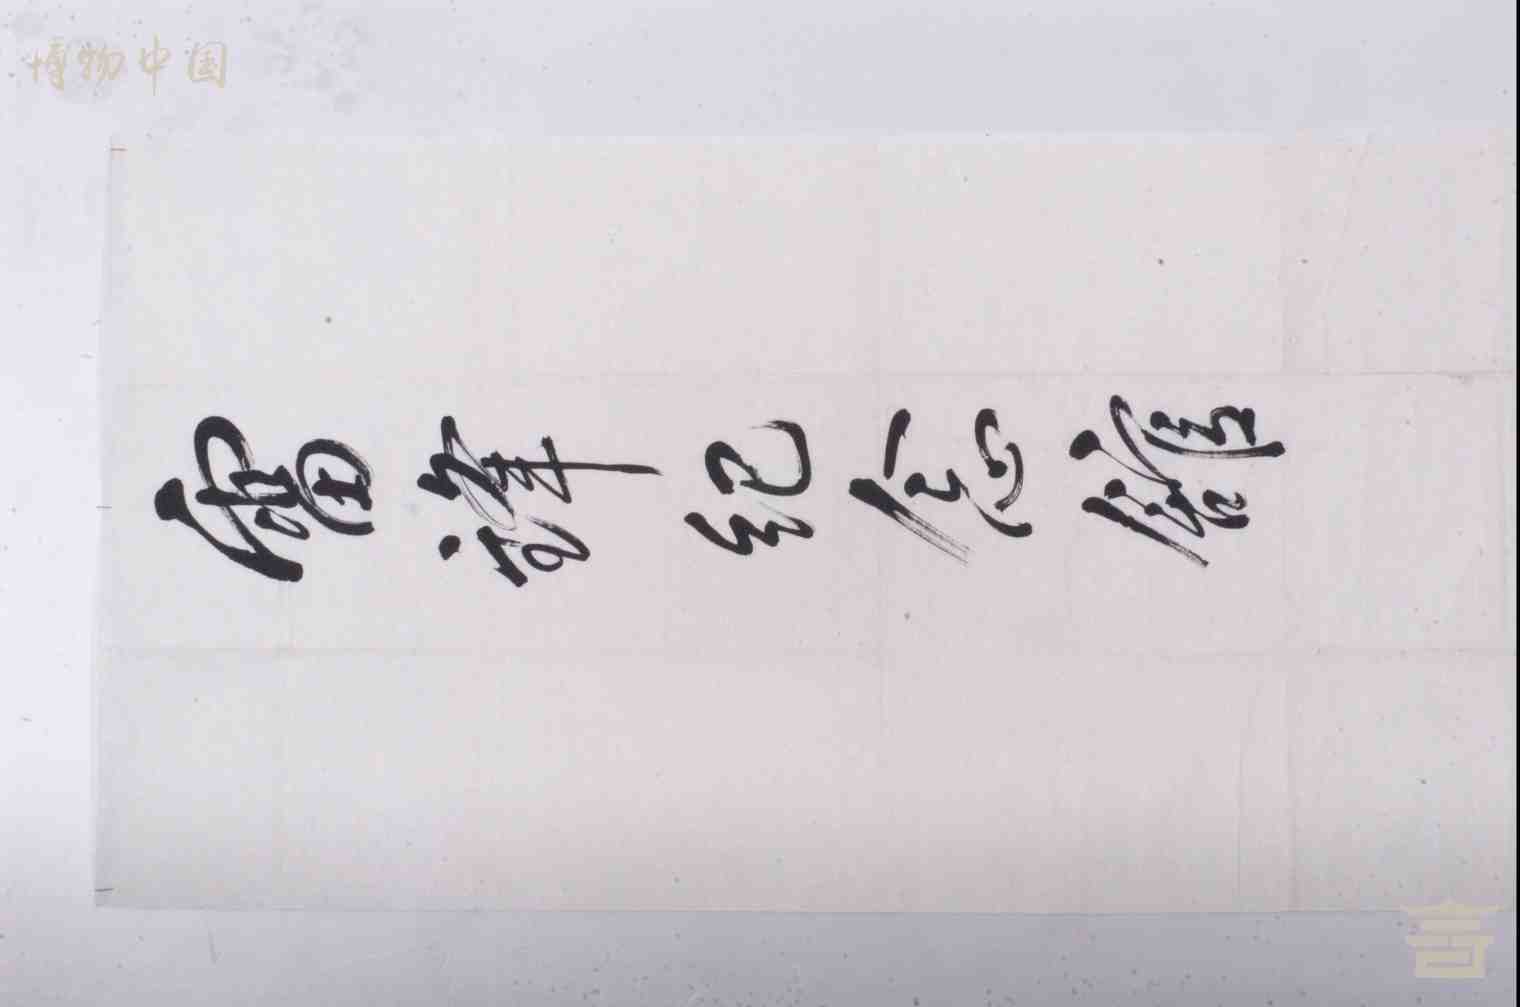 博物中国
雷锋纪念館